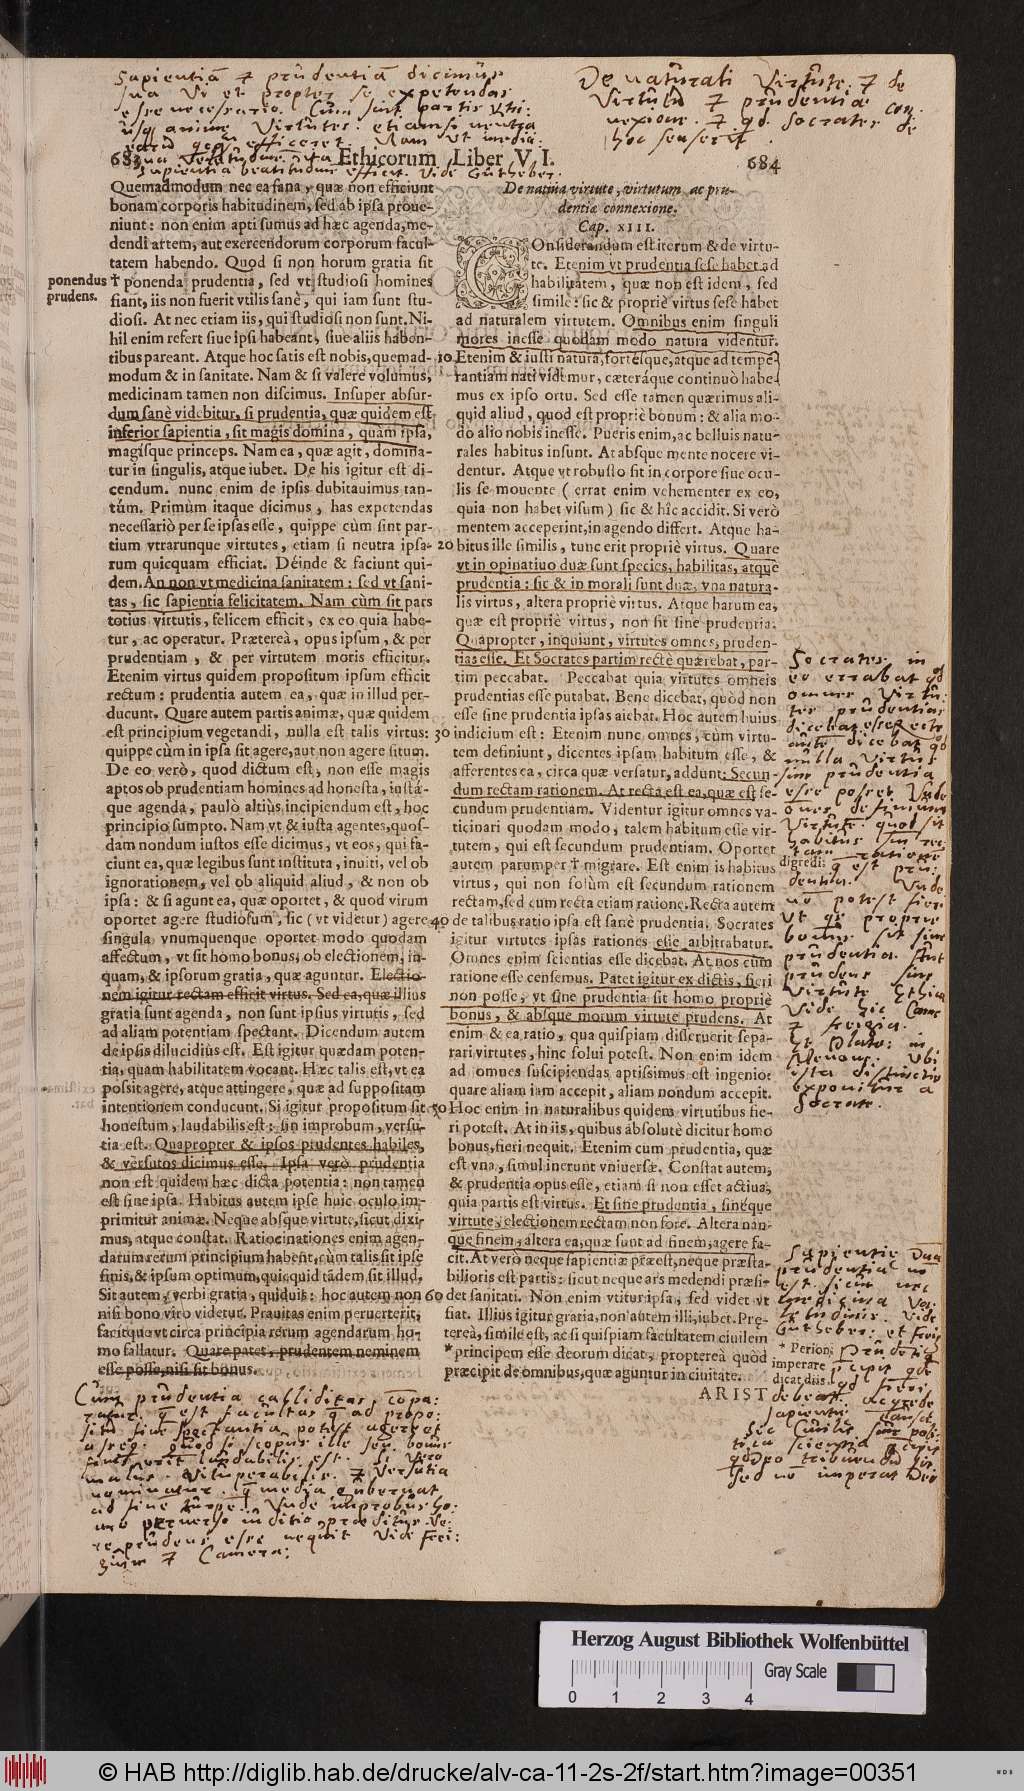 Sapientiā & prudentiā dicimus
sua vi et propter se expetendas
esse necessario. Cum sint partis utri:
usq animae virtutes. etiamsi neutra
earū quicq efficeret. Nam ut media:
Sapientia beatitudinē efficit. Vide Gutheber.
De naturali Virtute, & de
Virtutū & prudentiae con:
nexione. & qd. Socrates de
hoc senserit.
683 Ethicorum Liber VI. 684
Quemadmodum nec ea sana, quæ non efficiunt
bonam corporis habitudinem, sed ab ipsa proue-
niunt: non enim apti sumus ad hæc agenda, me-
dendi artem, aut exercendorum corporum facul-
tatem habendo. Quod si non horum gratia sit
ponendus † ponenda prudentia, sed vt studiosi homines
prudens. fiant, iis non fuerit vtilis sanè, qui iam sunt stu-
diosi. At nec etiam iis, qui studiosi non sunt. Ni-
hil enim refert siue ipsi habeant, siue aliis haben-
tibus pareant. Atque hoc satis est nobis, quemad-
modum & in sanitate. Nam & si valere volumus,
medicinam tamen non discimus. Insuper absur-
dum sanè videbitur, si prudentia, quæ quidem est
inferior sapientia, sit magis domina, quàm ipsa,
magisque princeps. Nam ea, quæ agit, domina-
tur in singulis, atque iubet. De his igitur est di-
cendum. nunc enim de ipsis dubitauimus tan-
túm. Primùm itaque dicimus, has expetendas
necessariò per se ipsas esse, quippe cùm sint par-
tium vtrarunque virtutes, etiam si neutra ipsa-
rum quicquam efficiat. Déinde & faciunt qui-
dem. An non vt medicina sanitatem: sed vt sani-
tas, sic sapientia felicitatem. Nam cùm sit pars
totius virtutis, felicem efficit, ex eo quia habe-
tur, ac operatur. Prætereà, opus ipsum, & per
prudentiam, & per virtutem moris efficitur.
Etenim virtus quidem propositum ipsum efficit
rectum: prudentia autem ea, quæ in illud per-
ducunt. Quare autem partis animæ, quæ quidem
est principium vegetandi, nulla est talis virtus:
quippe cùm in ipsa sit agere, aut non agere situm.
De eo verò, quod dictum est, non esse magis
aptos ob prudentiam homines ad honesta, iustá-
que agenda, paulò altiùs incipiendum est, hoc
principio sumpto. Nam vt & iusta agentes, quos-
dam nondum iustos esse dicimus, vt eos, qui fa-
ciunt ea, quæ legibus sunt instituta, inuiti, vel ob
ignorationem, vel ob aliquid aliud, & non ob
ipsa: & si agunt ea, quæ oportet, & quod virum
oportet agere studiosum, sic (vt videtur) agere
singula vnumquenque oportet modo quodam
affectum, vt sit homo bonus, ob electionem, in-
quam, & ipsorum gratia, quæ aguntur. Electio-
nem igitur rectam efficit virtus. Sed ea, quæ illius
gratia sunt agenda, non sunt ipsius virtutis, sed
ad aliam potentiam spectant. Dicendum autem
de ipsis dilucidiùs est. Est igitur quædam poten-
tia, quam habilitatem vocant. Hæc talis est, vt ea
possit agere, atque attingere, quæ ad suppositam
intentionem conducunt. Si igitur propositum sit
honestum, laudabilis est: sin improbum, versu-
tia est. Quapropter & ipsos prudentes habiles,
& versutos dicimus esse. Ipsa verò prudentia
non est quidem hæc dicta potentia: non tamen
est sine ipsa. Habitus autem ipse huic oculo im-
primitur animæ. Neque absque virtute, sicut dixi-
mus, atque constat. Ratiocinationes enim agen-
darum rerum principium habent, cùm talis sit ipse
finis, & ipsum optimum, quicquid tādem sit illud.
Sit autem, verbi gratia, quiduis: hoc autem non
nisi bono viro videtur. Prauitas enim peruerterit,
facitque vt circa principia rerum agendarum ho-
mo fallatur. Quare patet, prudentem neminem
esse posse, nisi sit bonus.
De natura virtute, virtutum ac pru-
dentiæ connexione.
Cap. XIII.
COnsiderandum est iterum & de virtu-
te. Etenim vt prudentia sese habet ad
habilitatem, quæ non est idem, sed
simile: sic & propriè virtus sese habet
ad naturalem virtutem. Omnibus enim singuli
mores inesse quodam modo natura videntur.
10 Etenim & iusti natura, fortésque, atque ad tempe-
rantiam nati videmur, cæteráque continuò habe-
mus ex ipso ortu. Sed esse tamen quærimus ali-
quid aliud, quod est propriè bonum: & alia mo-
do alio nobis inesse. Pueris enim, ac belluis natu-
rales habitus insunt. At absque mente nocere vi-
dentur. Atque vt robusto sit in corpore siue ocu-
lis se mouente (errat enim vehementer ex eo,
quia non habet visum) sic & hîc accidit. Si verò
mentem acceperint, in agendo differt. Atque ha-
20 bitus ille similis, tunc erit propriè virtus. Quare
vt in opinatiuo duæ sunt species, habilitas, atque
prudentia: sic & in morali sunt duæ, vna natura-
lis virtus, altera propriè virtus. Atque harum ea,
quæ est propriè virtus, non sit sine prudentia.
Quapropter, inquiunt, virtutes omnes, pruden-
tias esse. Et Socrates partim rectè quærebat, par-
tim peccabat. Peccabat quia virtutes omneis
prudentias esse putabat. Bene dicebat, quòd non
esse sine prudentia ipsas aiebat. Hoc autem huius
30 indicium est: Etenim nunc omnes, cùm virtu-
tem definiunt, dicentes ipsam habitum esse, &
afferentes ea, circa quæ versatur, addunt: Secun-
dum rectam rationem. At recta est ea, quæ est se-
cundum prudentiam. Videntur igitur omnes va-
ticinari quodam modo, talem habitum esse vir-
tutem, qui est secundum prudentiam. Oportet
autem parumper † migrare. Est enim is habitus
virtus, qui non solùm est secundum rationem
rectam, sed cum recta etiam ratione. Recta autem
40 de talibus ratio ipsa est sanè prudentia. Socrates
igitur virtutes ipsas rationes esse arbitrabatur.
Omnes enim scientias esse dicebat. At nos cùm
ratione esse censemus. Patet igitur ex dictis, fieri
non posse, vt sine prudentia sit homo propriè
bonus, & absque morum virtute prudens. At
enim & ea ratio, qua quispiam disseruerit sepa-
rari virtutes, hinc solui potest. Non enim idem
ad omnes suscipiendas aptissimus est ingenio:
quare aliam iam accepit, aliam nondum accepit.
50 Hoc enim in naturalibus quidem virtutibus fie-
ri potest. At in iis, quibus absolutè dicitur homo
bonus, fieri nequit. Etenim cum prudentia, quæ
est vna, simul inerunt vniuersæ. Constat autem,
& prudentia opus esse, etiam si non esset actiua,
quia partis est virtus. Et sine prudentia, sinéque
virtute, electionem rectam non fore. Altera nan-
que finem, altera ea, quæ sunt ad finem, agere fa-
cit. At verò neque sapientiæ præest, neque præsta-
bilioris est partis: sicut neque ars medendi præsi-
60 det sanitati. Non enim vtitur ipsa, sed videt vt
fiat. Illius igitur gratia, non autem illi, iubet. Præ-
tereà, simile est, ac si quispiam facultatem ciuilem
* principem esse deorum dicat, proptereà quòd
præcipit de omnibus, quæ aguntur in ciuitate.
ARIST
Socrates in
eo errabat qd
omnes Virtu:
tes prudentias
dicebat esse. Recte
autē dicebat qd
nulla virtus
sine prudentia
esse posset. Vnde
omnes definiunt
Virtutē. quod sit
habitus cum rec
tam rationē
digredi: q est pru:
dentia. Vnde
nō potest fieri
Ut qs proprie
bonus sit sine
prudentia. aut
prudens sine
virtute Ethica
Vide hic Came
& frigia.
et Plato: in
Menone. Ubi
ista distinctio
exponitur a
Socrate.
Sapientie
prudentia nō
est. sicut nec
medicina
Vide
Gutheber. et
* Perion;
imperare
dicat, diis.
Sapientie
Sic Civilis
tica scientia
sed nō imperat Deo
Cum prudentia calliditas compa:
ratur. q est facultas q ad propo:
situm finē spectantia potest agere et
asseq. quod si scopus ille seu bonus
finis erit laudabilis est. Si Vero
malus. Vituperabilis. & Versutia
nominatur. q media gubernat
ad fine turpe. Vnde improbus ho:
mo
re prudens esse nequit. Vide
& Camera:
Herzog August Bibliothek Wolfenbüttel
Gray Scale
0 1 2 3 4
© HAB http://diglib.hab.de/drucke/alv-ca-11-2s-2f/start.htm?image=00351